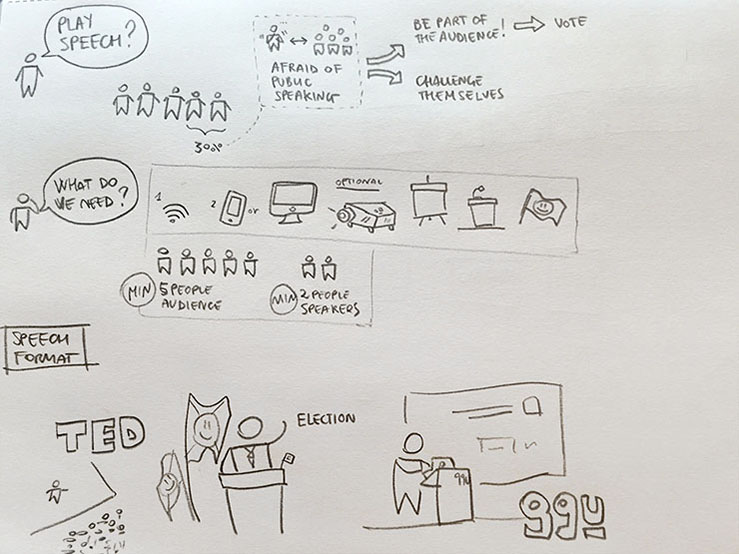 PLAY
SPEECH?
"
"
AFRAID OF
PUBLIC
SPEAKING
BE PART OF
THE AUDIENCE!
VOTE
CHALLENGE
THEMSELVES
30%
WHAT DO
WE NEED?
1
2
or
OPTIONAL
MIN
5 PEOPLE
AUDIENCE
MIN
2 PEOPLE
SPEAKERS
SPEECH
FORMAT
TED
ELECTION
99U
99U